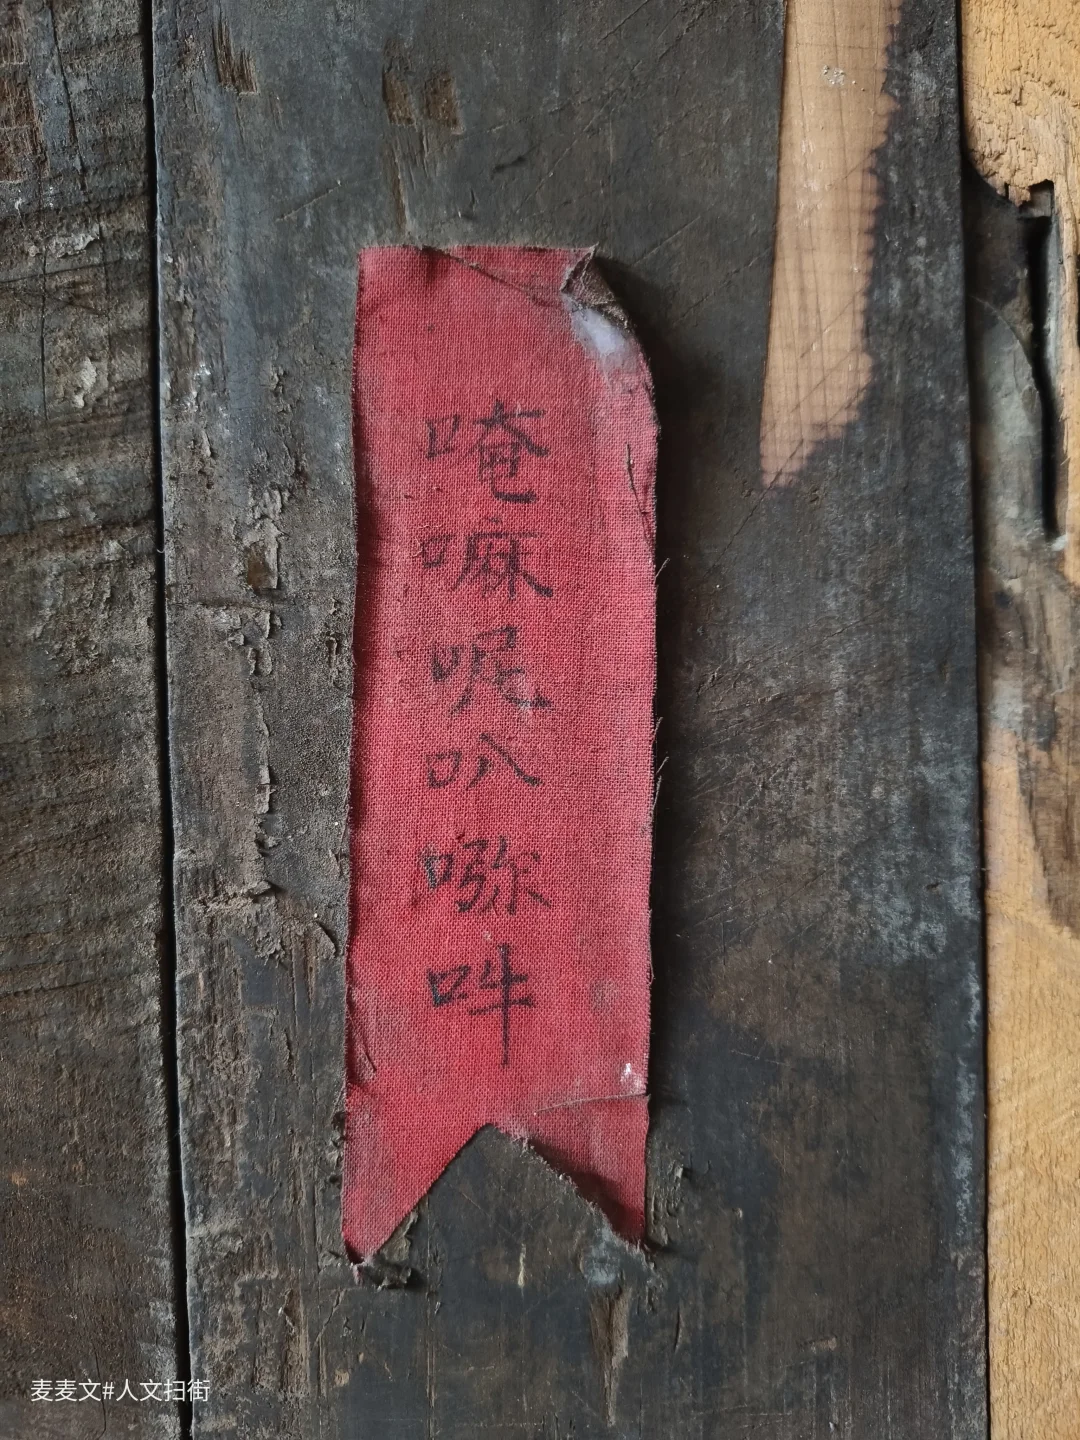 唵嘛呢叭㖷吽
麦麦文#人文扫街